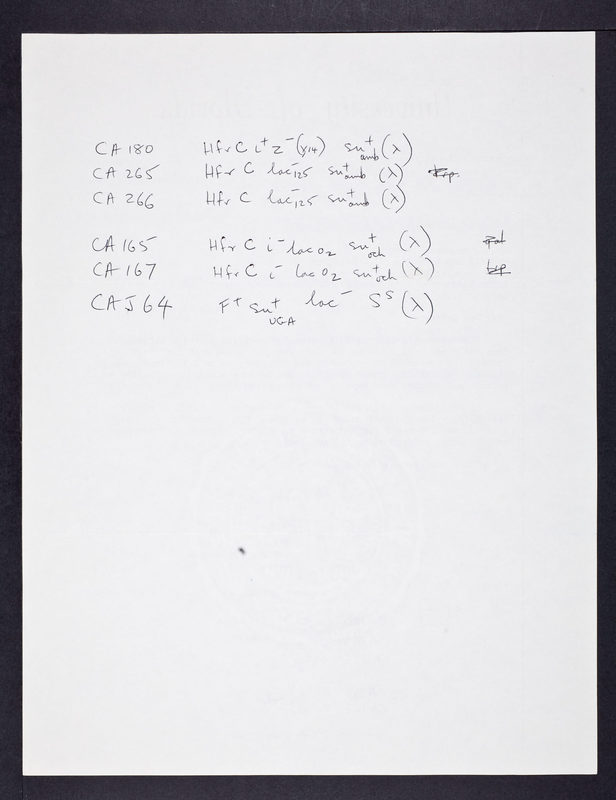 CA 180 Hfr C i⁺ z⁻ (Y14) su⁺amb (λ)
CA 265 Hfr C lac⁻125 su⁺amb (λ) trp.
CA 266 Hfr C lac⁻125 su⁺amb (λ)
CA 165 Hfr C i⁻ lac O2 su⁺och (λ)
CA 167 Hfr C i⁻ lac O2 su⁺och (λ) trp
CAJ 64 F⁺ su⁺UGA lac⁻ Sˢ (λ)